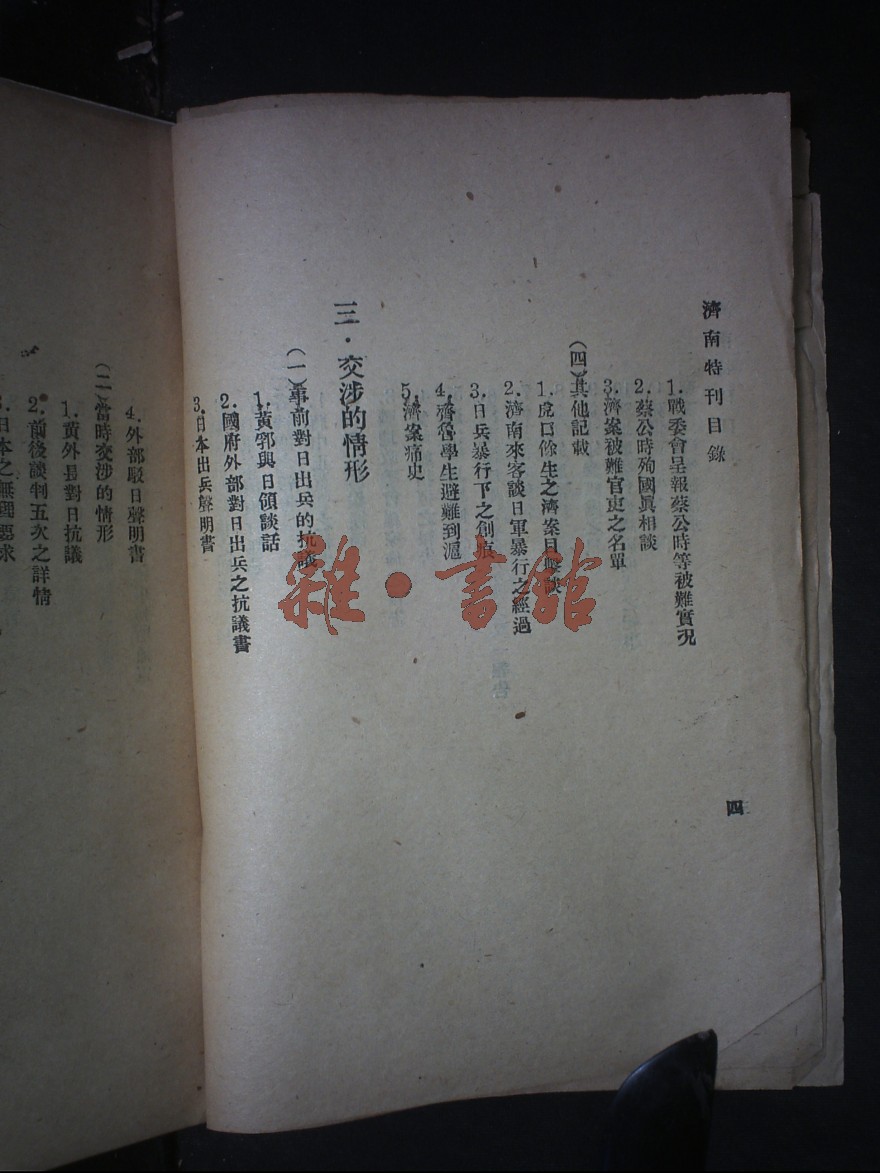 濟南特刊目錄
1.戰委會呈報蔡公時等被難實况
2.蔡公時殉國眞相談
3.濟案被難官吏之名單
(四)其他記載
1.虎口餘生之濟案目擊談
2.濟南來客談日軍暴行之經過
3.日兵暴行下之創痕
4.齊魯學生避難到滬
5.濟案痛史
三·交涉的情形
(一)事前對日出兵的抗議
1.黃郛與日領談話
2.國府外部對日出兵之抗議書
3.日本出兵聲明書
四
4.外部駁日聲明書
(二)當時交涉的情形
1.黃外長對日抗議
2.前後談判五次之詳情
3.日本之無理要求
雜·書館